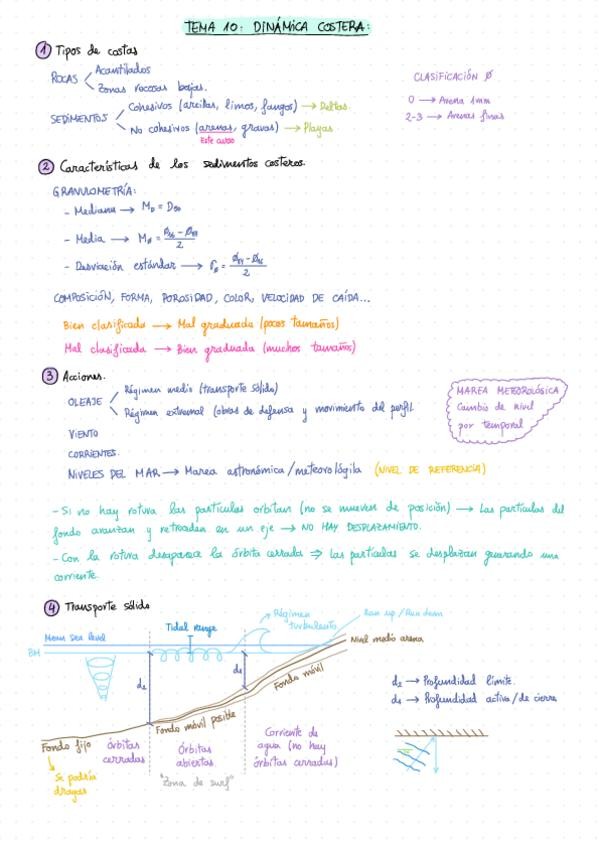 TEMA 10: DINÁMICA COSTERA:
1 Tipos de costas
ROCAS
Acantilados
Zonas rocosas bajas.
SEDIMENTOS
Cohesivos (arcillas, limos, fangos) → Deltas.
No cohesivos (arenas, gravas) → Playas
Este curso
CLASIFICACIÓN Ø
0 → Arena 1mm
2-3 → Arenas finas
2 Características de los sedimentos costeros.
GRANULOMETRÍA:
- Mediana → M_D = D_50
- Media → M_ø = (Ø_16 - Ø_84)/2
- Desviación estándar → σ_ø = (Ø_84 - Ø_16)/2
COMPOSICIÓN, FORMA, POROSIDAD, COLOR, VELOCIDAD DE CAÍDA...
Bien clasificada → Mal graduada (pocos tamaños)
Mal clasificada → Bien graduada (muchos tamaños)
3 Acciones.
OLEAJE
Régimen medio (transporte sólido)
Régimen extremal (obras de defensa y movimiento del perfil
VIENTO
CORRIENTES.
NIVELES DEL MAR → Marea astronómica/meteorológila (NIVEL DE REFERENCIA)
MAREA METEOROLÓGICA
Cambio de nivel
por temporal
- Si no hay rotura las partículas orbitan (no se mueven de posición) → Las partículas del
fondo avanzan y retroceden en un eje → NO HAY DESPLAZAMIENTO.
- Con la rotura desaparece la órbita cerrada ⇒ las partículas se desplazan generando una
corriente.
4 Transporte sólido
Mean sea level
BM
Tidal range
Régimen
turbulento
Run up / Run down
Nivel medio arena
Fondo móvil
Fondo móvil posible
Fondo fijo
Se podría
dragar
Órbitas
cerradas
Órbitas
abiertas
"Zona de surf"
Corriente de
agua (no hay
órbitas cerradas)
→ Profundidad límite.
→ Profundidad activa/de cierre